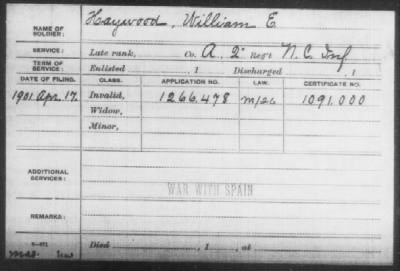 NAME OF SOLDIER: Haywood, William E.
SERVICE: Late rank, Co. A, 2" Reg't N.C. Inf
TERM OF SERVICE: Enlisted , 1 Discharged , 1
DATE OF FILING. CLASS. APPLICATION NO. LAW. CERTIFICATE NO.
1901 Apr. 17. Invalid, 1266.478 1091.000
Widow,
Minor,
ADDITIONAL SERVICES:
WAR WITH SPAIN
REMARKS:
Died , 1 , at